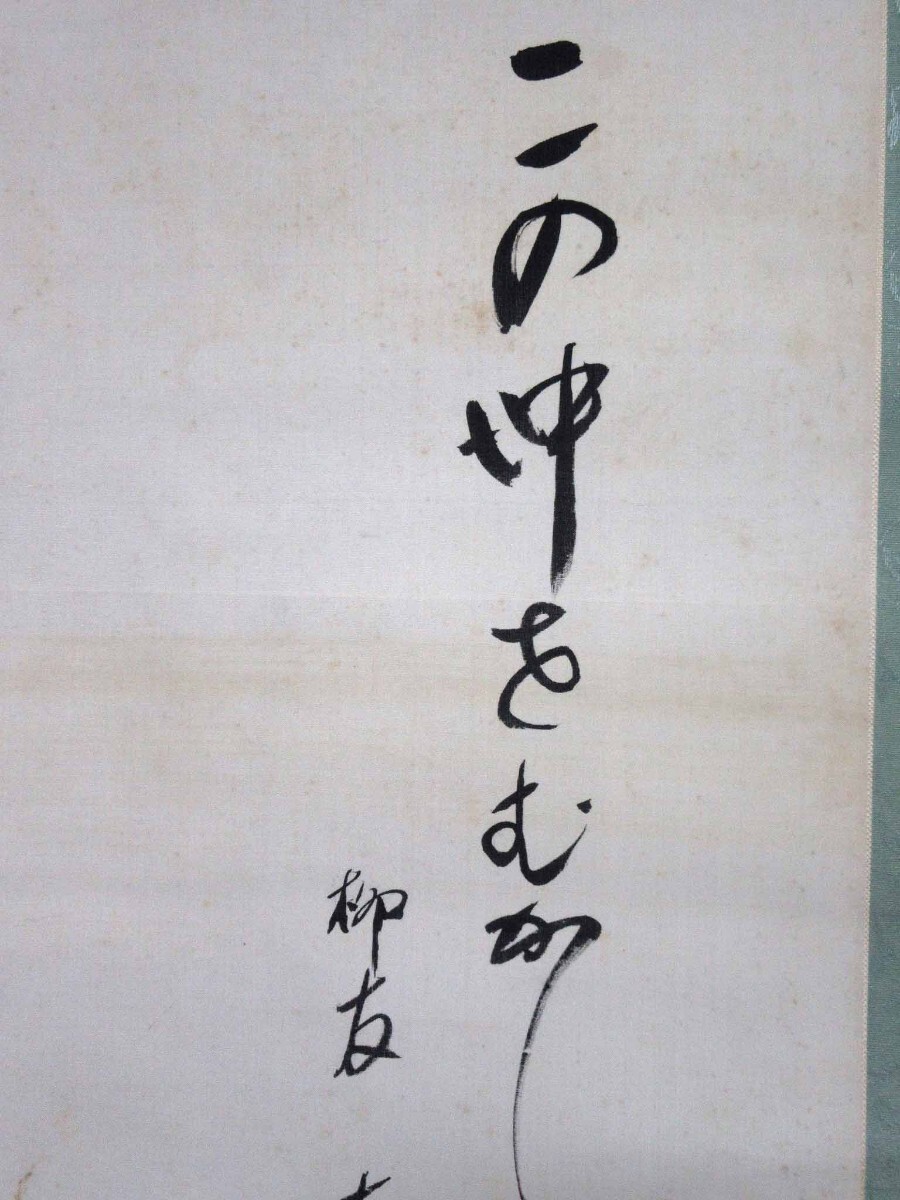 この岬をむかし
柳友